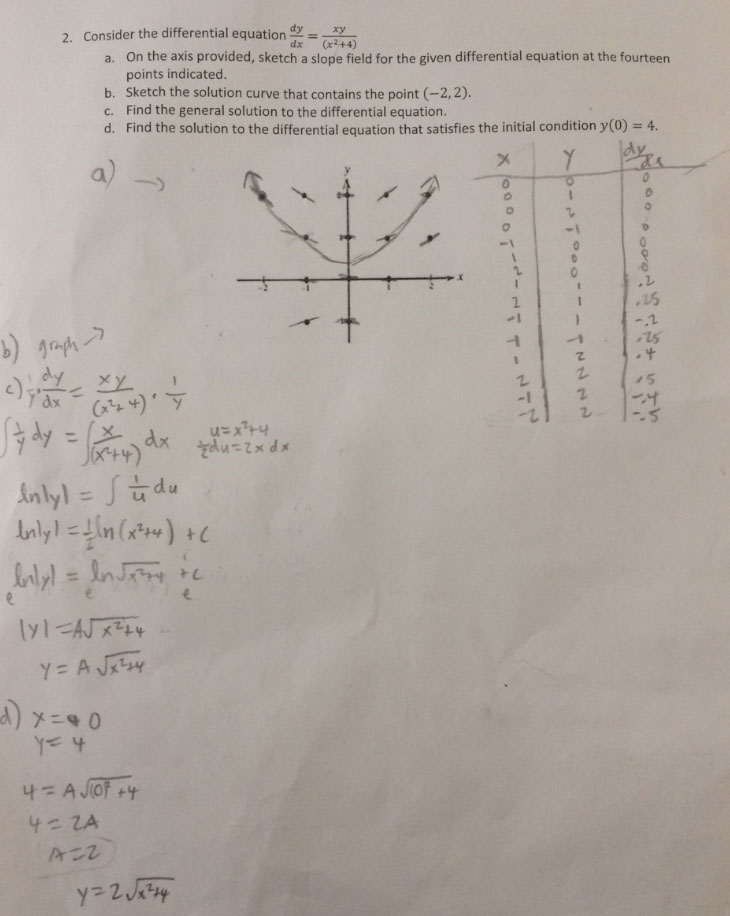 2. Consider the differential equation dy/dx = xy/(x²+4)
a. On the axis provided, sketch a slope field for the given differential equation at the fourteen
points indicated.
b. Sketch the solution curve that contains the point (−2, 2).
c. Find the general solution to the differential equation.
d. Find the solution to the differential equation that satisfies the initial condition y(0) = 4.
a) →
y
x
-2 -1 1 2
x y dy/dx
0 0 0
0 1 0
0 2 0
0 -1 0
-1 0 0
1 0 0
2 0 0
1 1 .2
2 1 .25
-1 1 -.2
-1 -1 .25
1 2 .4
2 2 .5
-1 2 -.4
-2 2 -.5
b) graph ↗
c) 1/y · dy/dx = xy/(x²+4) · 1/y
∫ 1/y dy = ∫ x/(x²+4) dx
u=x²+4
½du=2x dx
ln|y| = ∫ 1/u du
ln|y| = ½ ln(x²+4) + C
ln|y| = ln√x²+4 + C
e e e
|y| = A√x²+4
y = A√x²+4
d) x = 0
y = 4
4 = A√(0)²+4
4 = 2A
A = 2
y = 2√x²+4